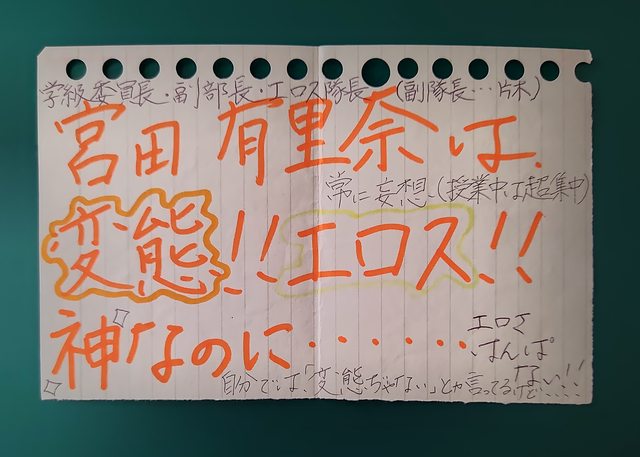 学級委員長・副部長・エロス隊長 (副隊長…片木)
宮田有里奈は、
常に妄想、(授業中は超集中)
変態!!エロス!!
神なのに・・・・・・
エロさ
はんぱ
ない!!
自分では「変態ぢゃない」とか言ってるけど・・・・